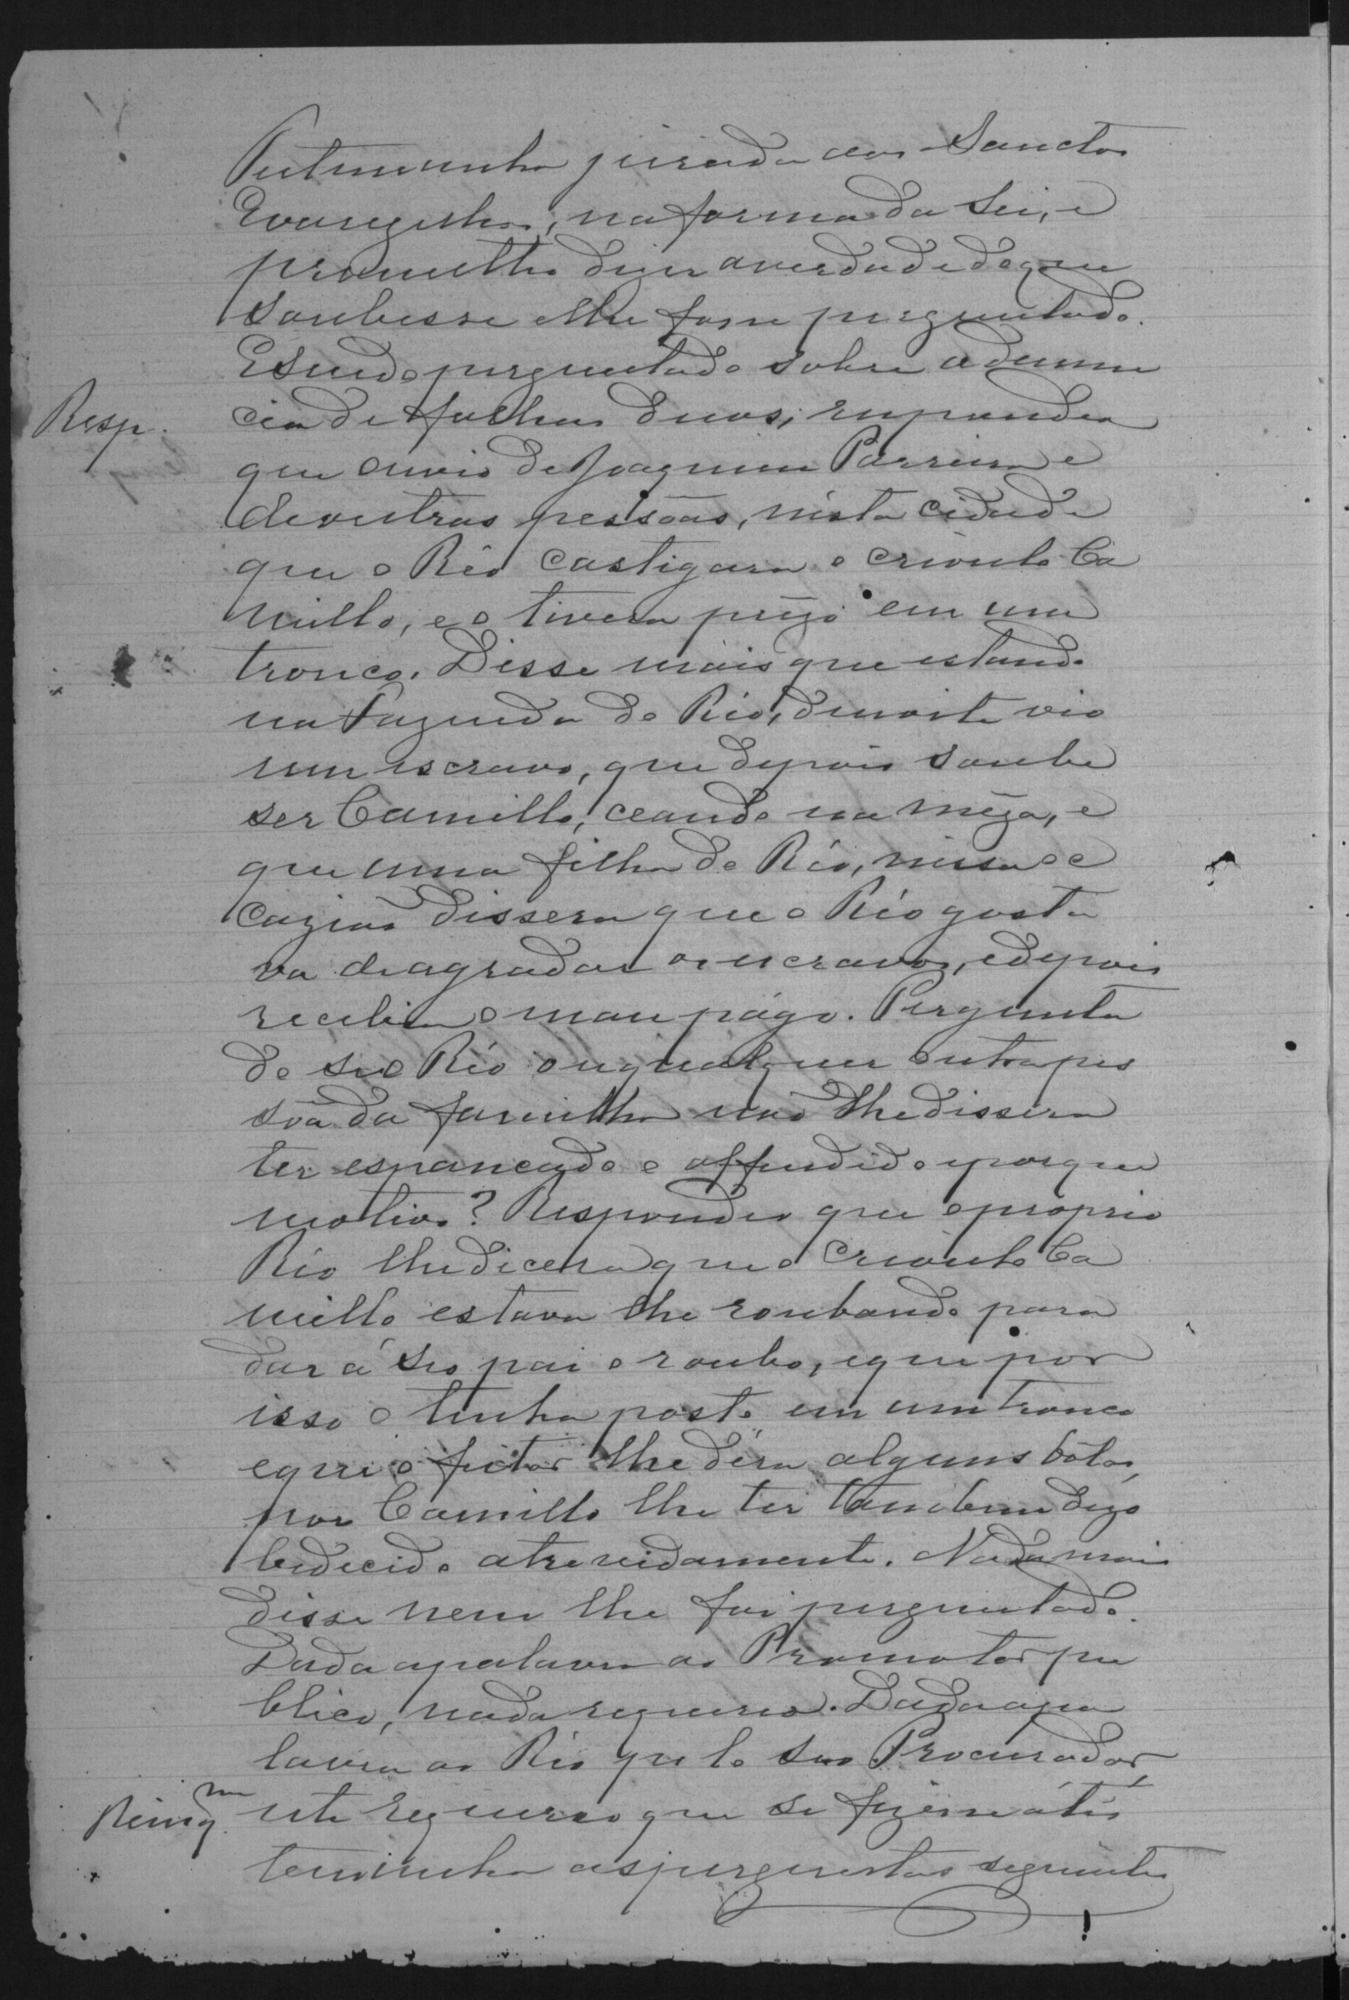 Testemunha jurada aos Sanctos
Evangelhos, na forma da Lei, e
prometteo dizer a verdade do que
soubesse e lhe fosse perguntado.
E sendo perguntado sobre a denun
Resp. cia de folhas duas, respondeo
que ouvio de Joaquim Parreira e
de outras pessôas, nésta cidade
que o Réo castigara o crioulo Ca
millo, e o tivera prêzo em um
tronco. Disse mais que estando
na Fazenda do Réo, de noite vio
um escravo, que depois soube
ser Camillo, ceando na mêza, e
que uma filha do Réo, nessa oc
cazião dissera que o Réo gosta
va de agradar os escravos, e depois
recebia o mau págo. Pergunta
do se o Réo ou qualquer outra pes
sôa da familha não lhe dissera
ter espancado o offendido e porque
motivo? Respondeo que o proprio
Réo lhe dicera que o crioulo Ca
millo estava lhe roubando para
dar á seo pai o roubo, e que por
isso o tinha posto em um tronco
e que o feitor lhe déra alguns bolos,
por Camillo lhe ter tambem dezo
bedecido atrevidamente. Nada mais
disse nem lhe foi perguntado.
Dada a palavra ao Promotor pu
blico, nada requereo. Dada a pa
lavra ao Réo por seo Procurador,
Reinq.m este requereo que se fizesse á tes
teminha as perguntas seguintes